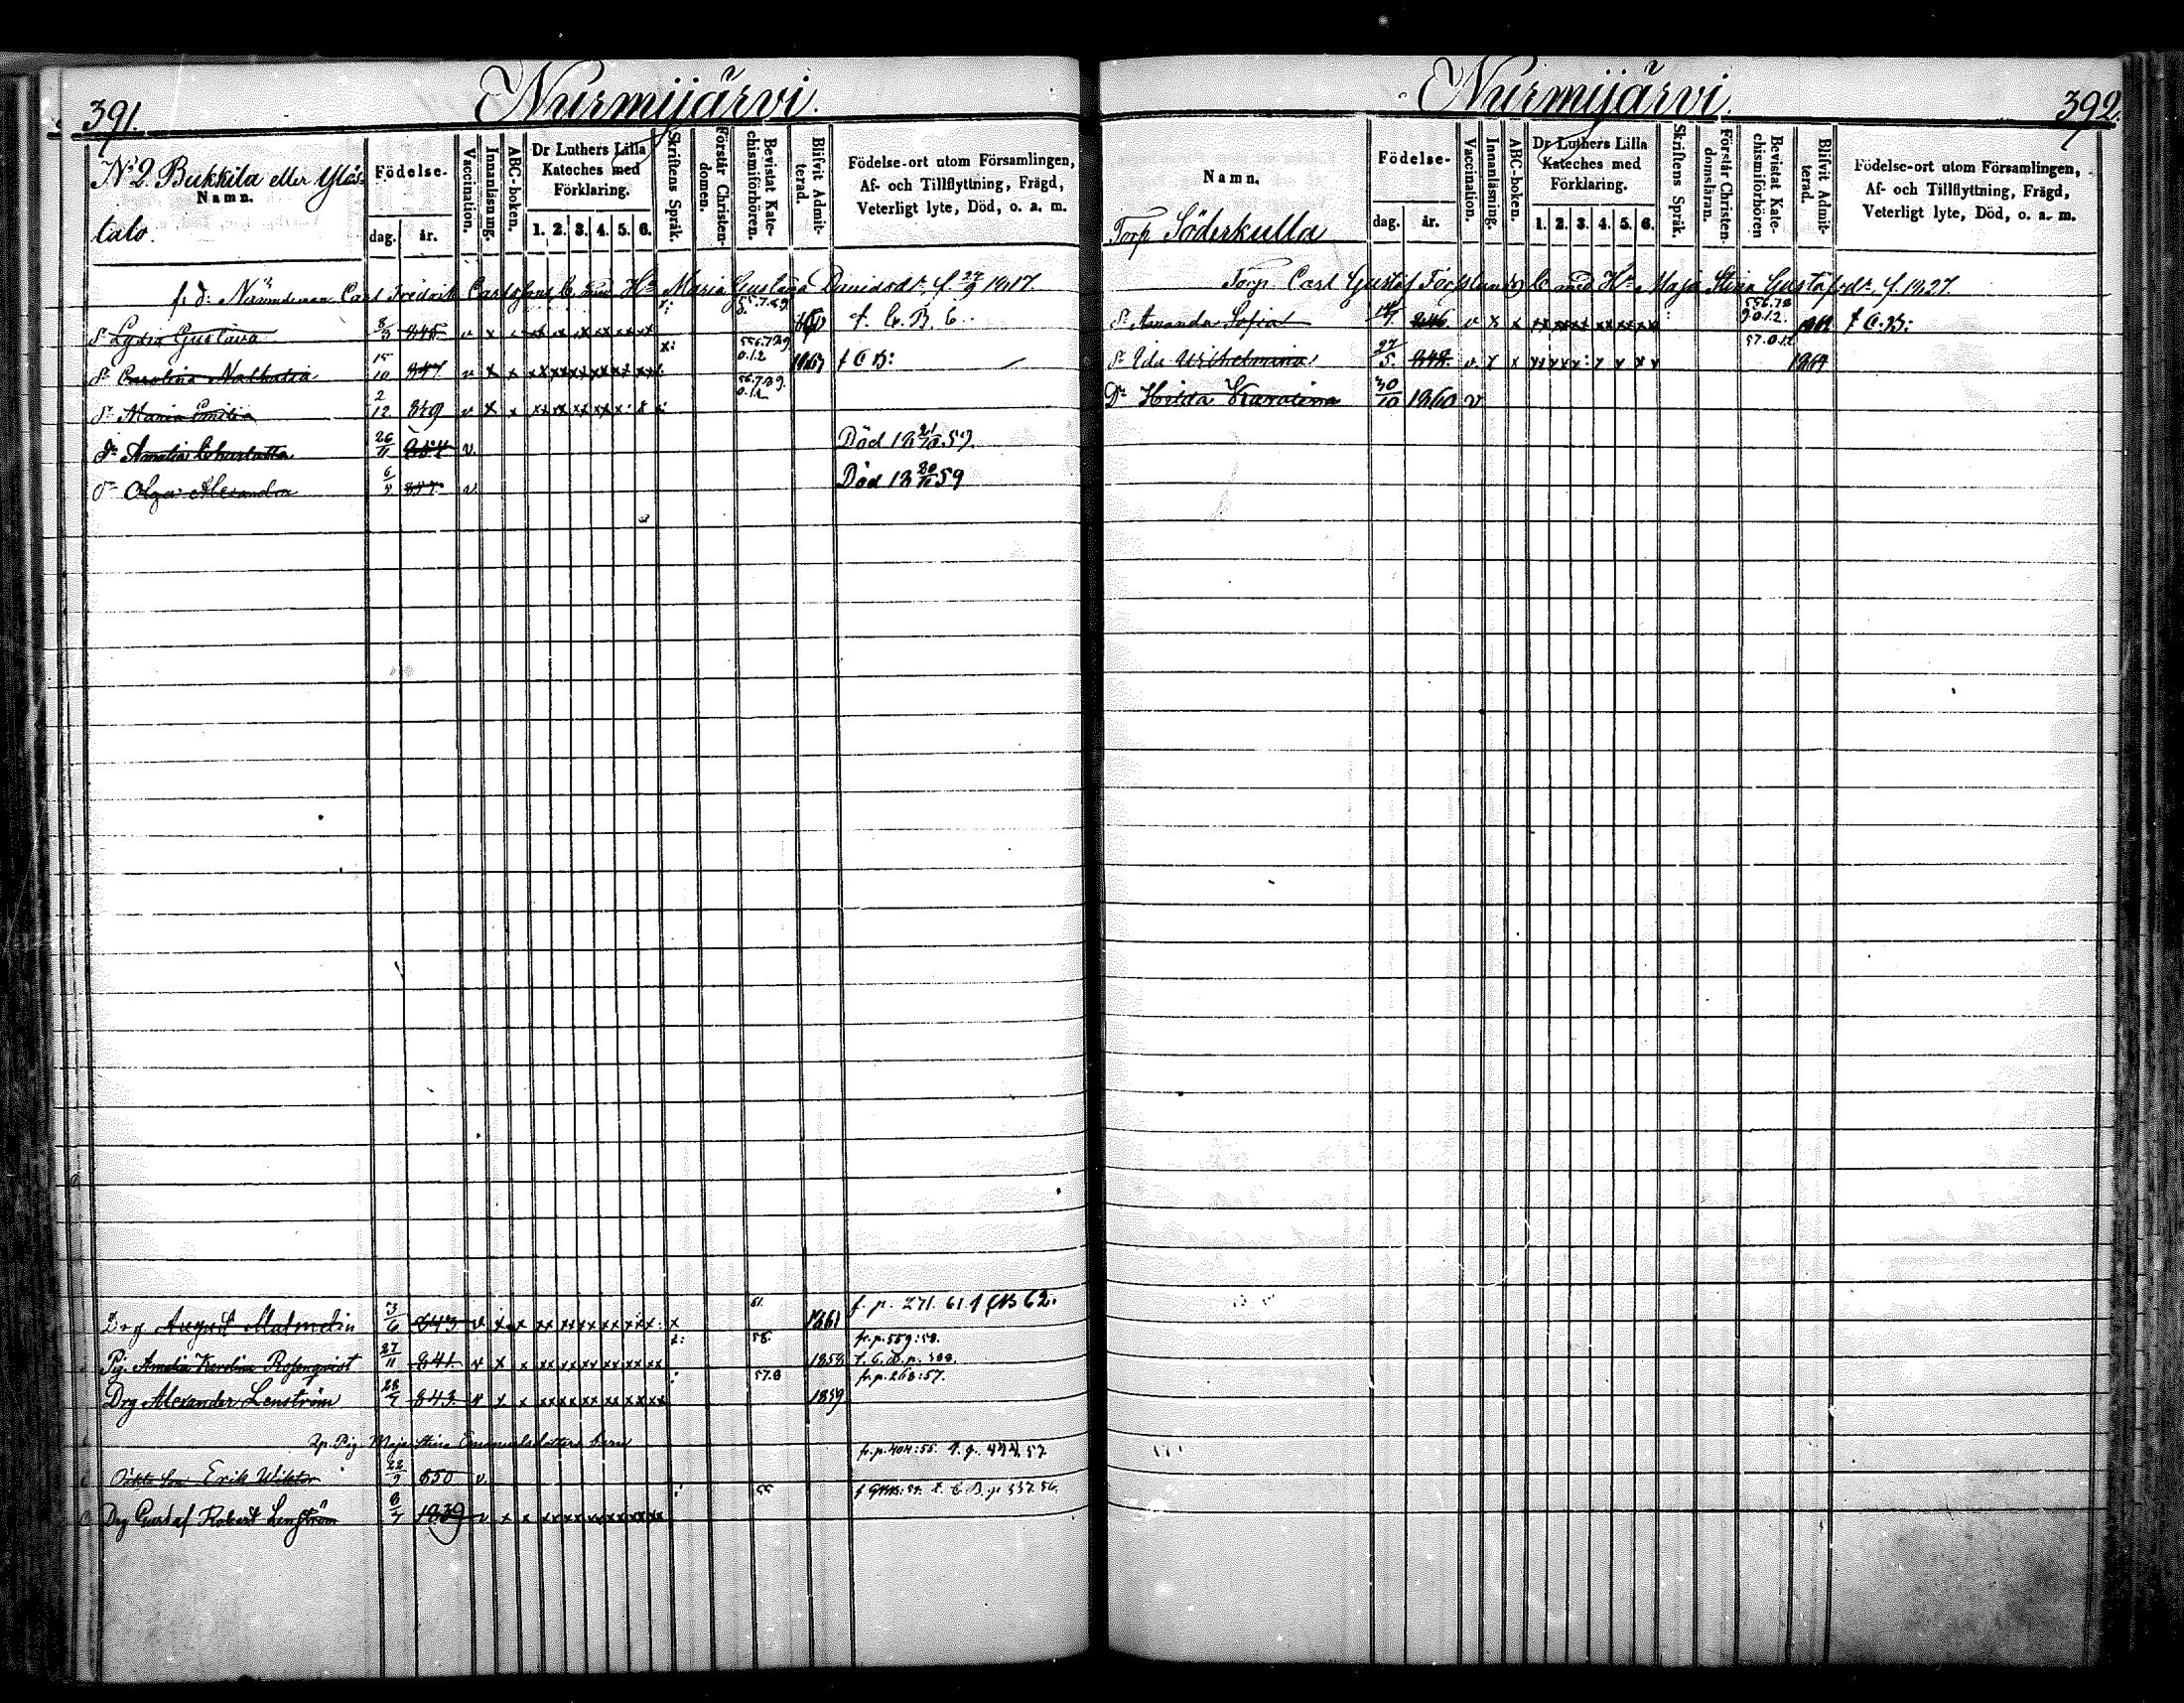 391.
Nurmijärvi.
No 2. Bukkila eller
Namn.
talo.
Födelse-
dag. år.
Vaccination.
Innanläsning.
ABC-boken.
Dr Luthers Lilla
Kateches med
Förklaring.
1. 2. 3. 4. 5. 6.
Skriftens Språk.
Förstår Christen-
domen.
Bevistat Kate-
chismiförhören.
Blifvit Admit-
terad.
Födelse-ort utom Församlingen,
Af- och Tillflyttning, Frägd,
Veterligt lyte, Död, o. a. m.
f. d. Nämndeman Carl Fredrik Carlssons b. med Hu Maria Gustava Davidsdr f. 27/9 1817.
Dr Lydia Gustava 8/3 845 v x f. C. B. C.
Dr Carolina Nathalia 15/10 847 v x x 556.729. 0.12 1863 f C B:
Dr Maria Emilia 2/12 849 v x x 56.789. 0.12
Dr Amalia Charlotta 26/11 854 v. Död 18 21/10 59.
Dr Olga Alexandra 6/4 857 v Död 18 20/11 59
Drg August Malmelin 3/6 843 v x x xx xx xx xx xx x 61. 1861 f. p. 271. 61. f CB 62.
Pig. Amalia Karolina Rosenqvist 27/11 841 v x x xx xx xx xx xx xx x: 58 1858 fr. p. 559:58. f. C. B. p. 388.
Drg Alexander Lenström 28/7 843. v x x xx xx xx xx xx xx : 57.8 1859 fr. p. 268:57.
Pig Maja Stina Emanuelsdotters barn
Oäkta Son Erik Wiktor 22/9 850 v. fr. p. 404:55. t. p. 444.57
Drg Gustaf Robert Lenström 8/7 1839 v x x xx xx xx xx xx xx : 55 t. C. B. p 337.56.
392.
Nurmijärvi.
Namn.
Torp Söderkulla
Födelse-
dag. år.
Vaccination.
Innanläsning.
ABC-boken.
Dr Luthers Lilla
Kateches med
Förklaring.
1. 2. 3. 4. 5. 6.
Skriftens Språk.
Förstår Christen-
domsläran.
Bevistat Kate-
chismiförhören
Blifvit Admit-
terad.
Födelse-ort utom Församlingen,
Af- och Tillflyttning, Frägd,
Veterligt lyte, Död, o. a. m.
Torp. Carl Gustaf Forsslund b. med Hu Maja Stina Gustafsdr. f. 1827.
Dr Amanda Sofia 846 v x x xx xx xx xx xx xx : 556.78 9.0.12. 1862 f C. B:
Dr Ida Wilhelmina 27/5. 848. v. x x 57.0.12 1864
Dr Hilda Karolina 30/10 1860 v